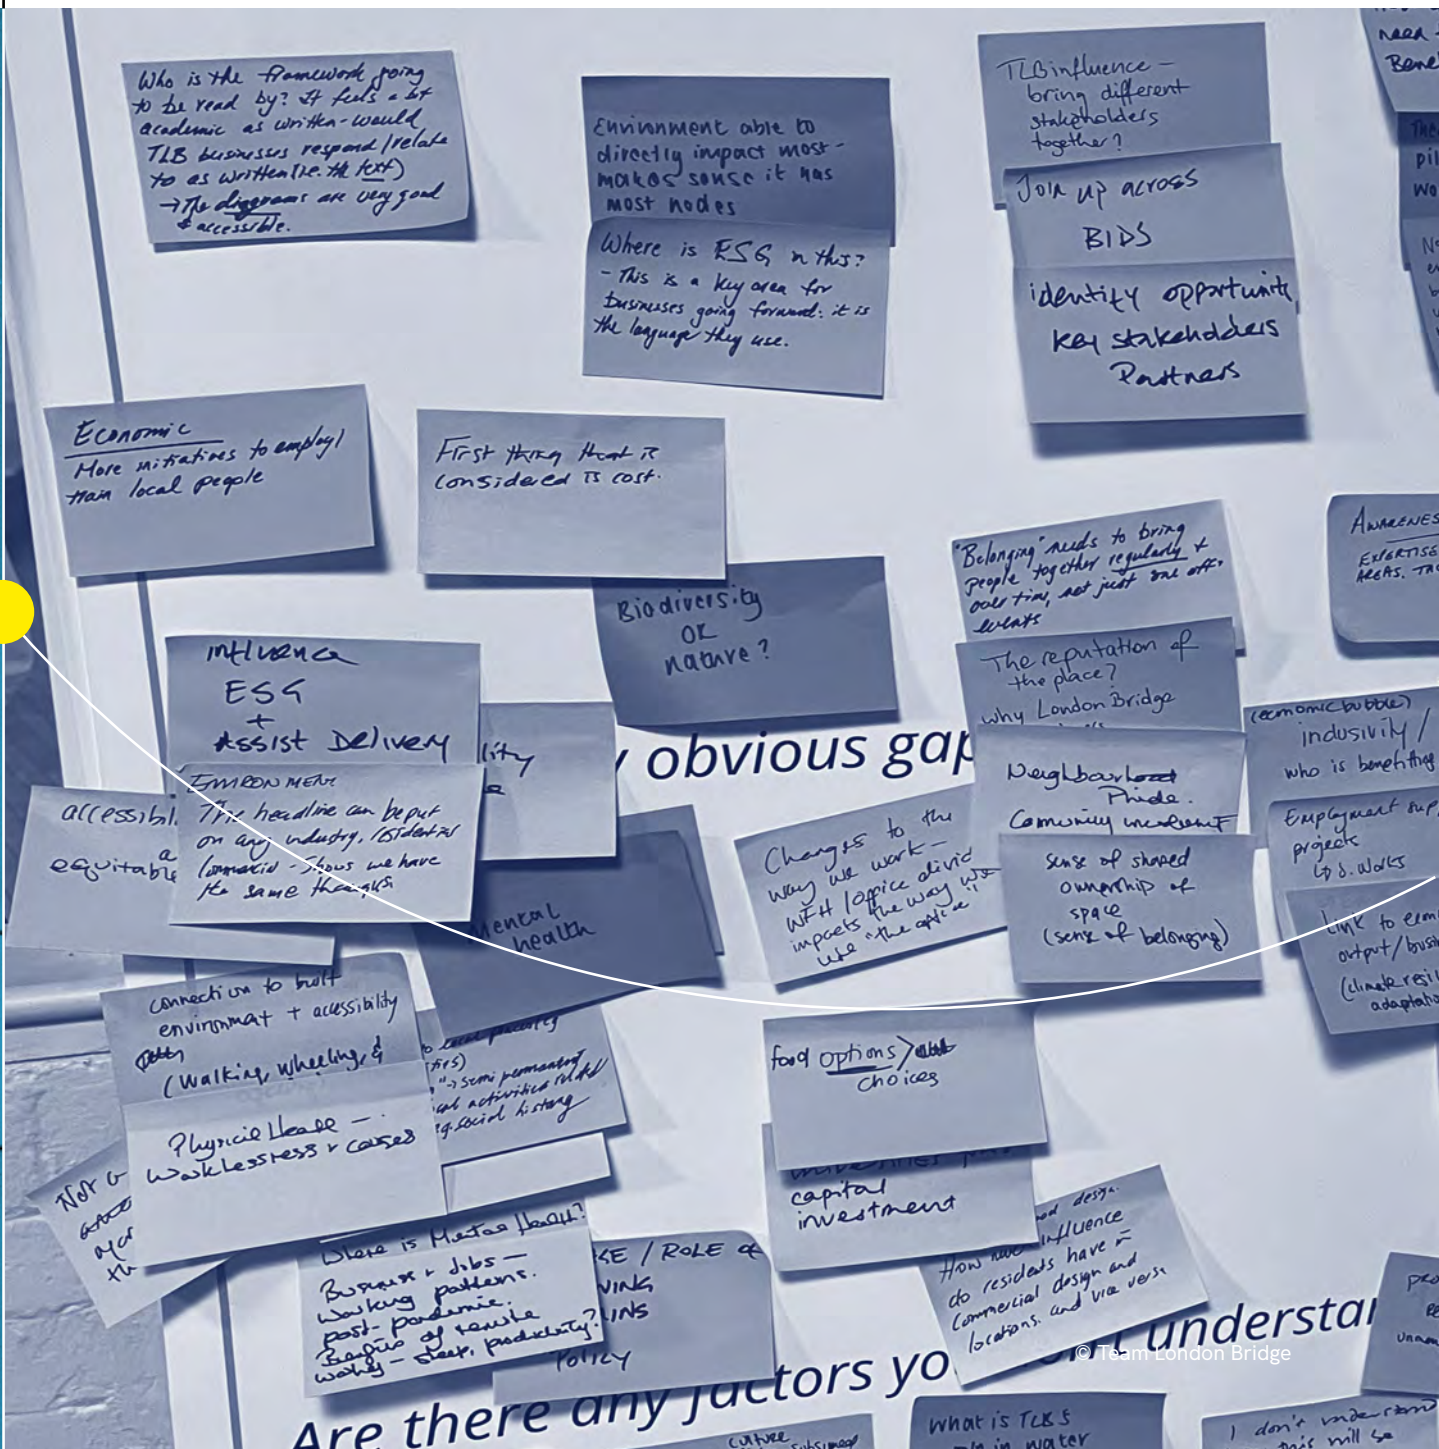 Who is the framework going
to be read by? It feels a bit
academic as written - would
TLB businesses respond/relate
to as written (ie. the text)
→ The diagrams are very good
& accessible.
Environment able to
directly impact most -
makes sense it has
most nodes
Where is ESG in this?
- This is a key area for
businesses going forward: it is
the language they use.
TLB influence -
bring different
stakeholders
together?
Join up across
BIDS
identify opportunity
key stakeholders
Partners
need
Economic
More initiatives to employ/
train local people
First thing that is
considered is cost.
Biodiversity
or
nature?
"Belonging" needs to bring
people together regularly +
over time, not just one off
events
The reputation of
the place?
why London Bridge
AWARENES
EXPERTISE
AREAS.
influence
ESG
+
Assist Delivery
lity
ENVIRONMENT
This headline can be put
on any industry, residential
commercial - shows we have
the same
accessibil
equitable
obvious gap
Mental
health
Changes to the
way we work -
WFH/office divid
impacts the way we
use "the office"
Neighbourhood
Pride.
Community
sense of shared
ownership of
space
(sense of belonging)
(economic bubble)
inclusivity/
who is benefitting
Employment sup
projects
Link to
output/
(climate resil
adaptatio
connection to built
environment + accessibility
(walking, wheeling, &
Physical
worklessness + causes
semi permanent
activities related
social history
food options/
choices
capital
investment
design.
How influence
do residents have
commercial design and
locations. and vice versa
Where is Mental Health?
Business + Jobs -
working patterns.
post-pandemic.
of remote
sleep, productivity?
/ ROLE of
Policy
Not
Are there any factors yo
understa
© Team London Bridge
culture
What is TLB's
in water
I don't understand
this will be